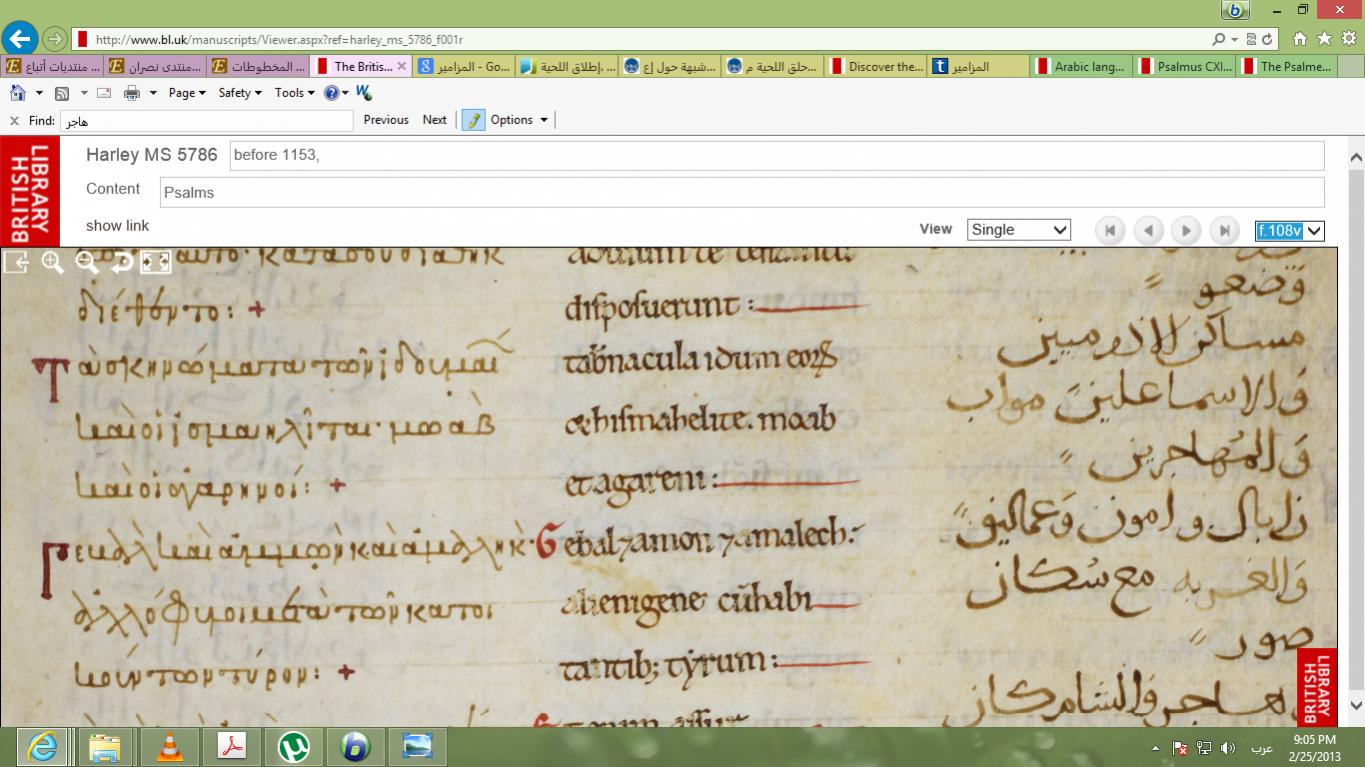 http://www.bl.uk/manuscripts/Viewer.aspx?ref=harley_ms_5786_f001r
منتديات أتباع ...
منتدى نصران...
المخطوطات ...
The Britis...
المزامير - Go...
إطلاق اللحية، ...
شبهة حول إع...
حلق اللحية م...
Discover the...
المزامير
Arabic lang...
Psalmus CXI...
The Psalme...
Page Safety Tools
Find: هاجر Previous Next Options
LIBRARY
BRITISH
Harley MS 5786 before 1153,
Content Psalms
show link View Single f.108v
διέθοντο: +
disposuerunt :
وضعو
Τὰ σκηνώματα τῶν ἰδουμαί
tab̄nacula idum eoꝝ
مساكن الادوميين
καὶ οἱ ἰσμαηλῖται· μωαβ
& hismahelite. moab
والاسماعلين مواب
καὶ οἱ ἀγαρηνοί: +
et agareni :
والمهاجرين
Γεβὰλ καὶ ἀμμῶν καὶ ἀμαλὴκ·
Gebal ⁊ amon ⁊ amalech:
زابال وامون وعماليق
ἀλλόφυλοι μετὰ τῶν κατοι
alienigene cū habi
والغربه مع سكان
κούντων τύρον: +
tantib; tyrum :
صور
هاجر
LIBRARY
BRITISH
عرب
9:05 PM
2/25/2013